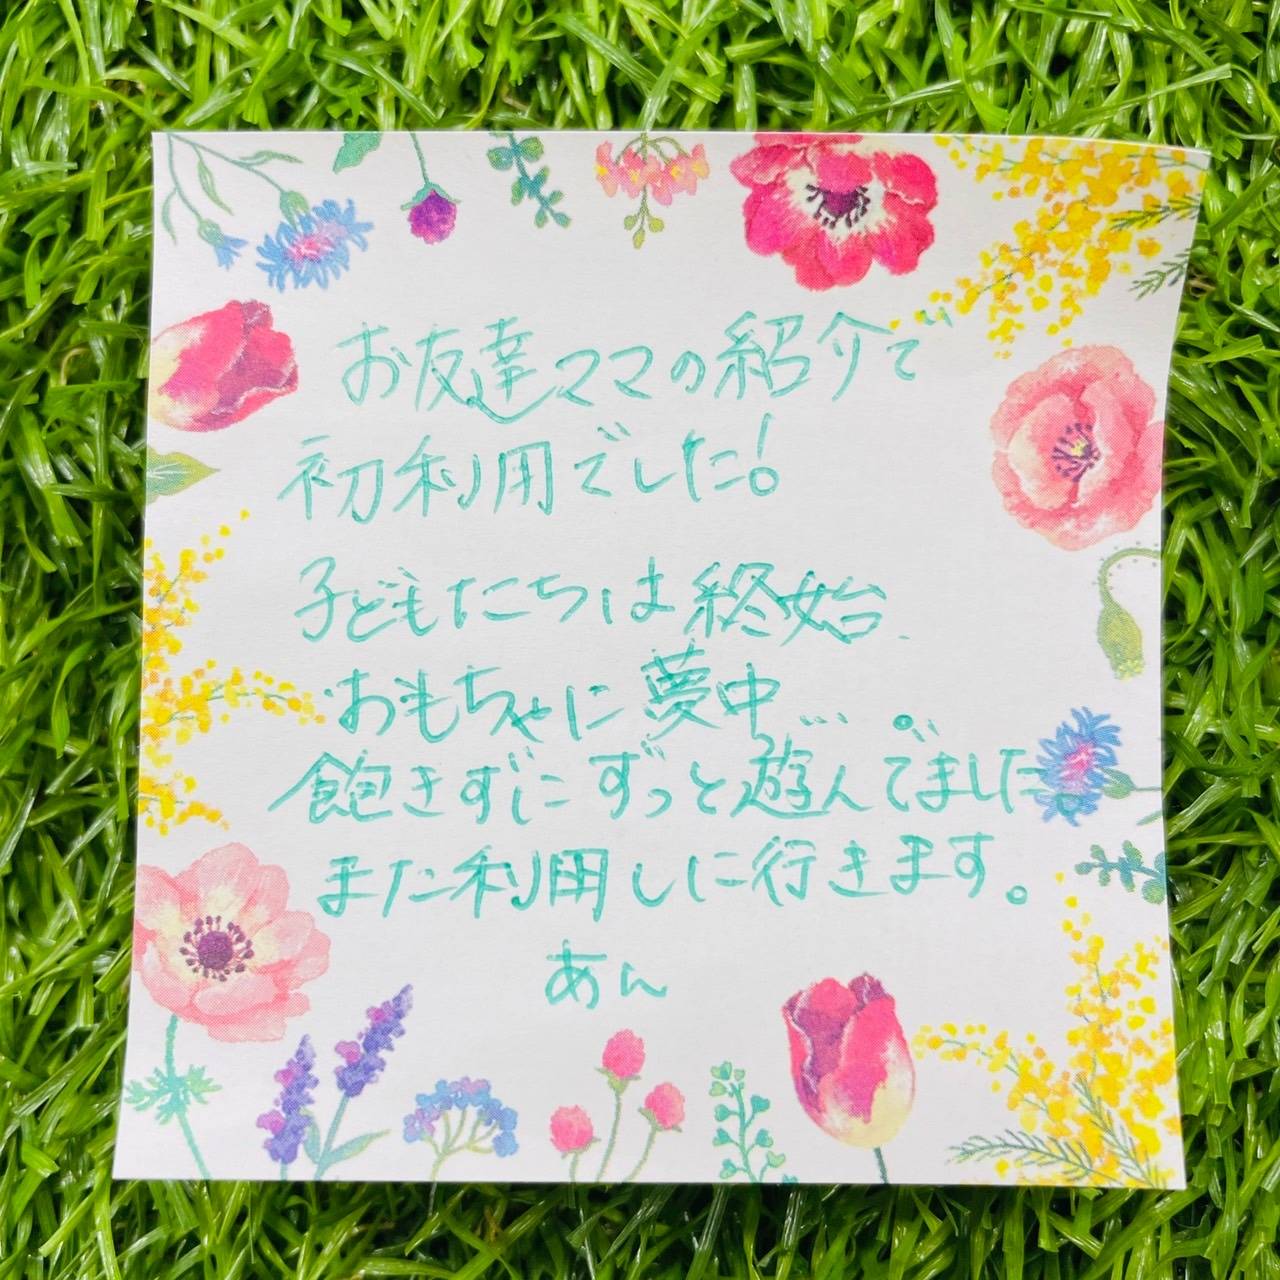 お友達ママの紹介で
初利用でした!
子どもたちは終始
おもちゃに夢中…。
飽きずにずっと遊んでました。
また利用しに行きます。
あん